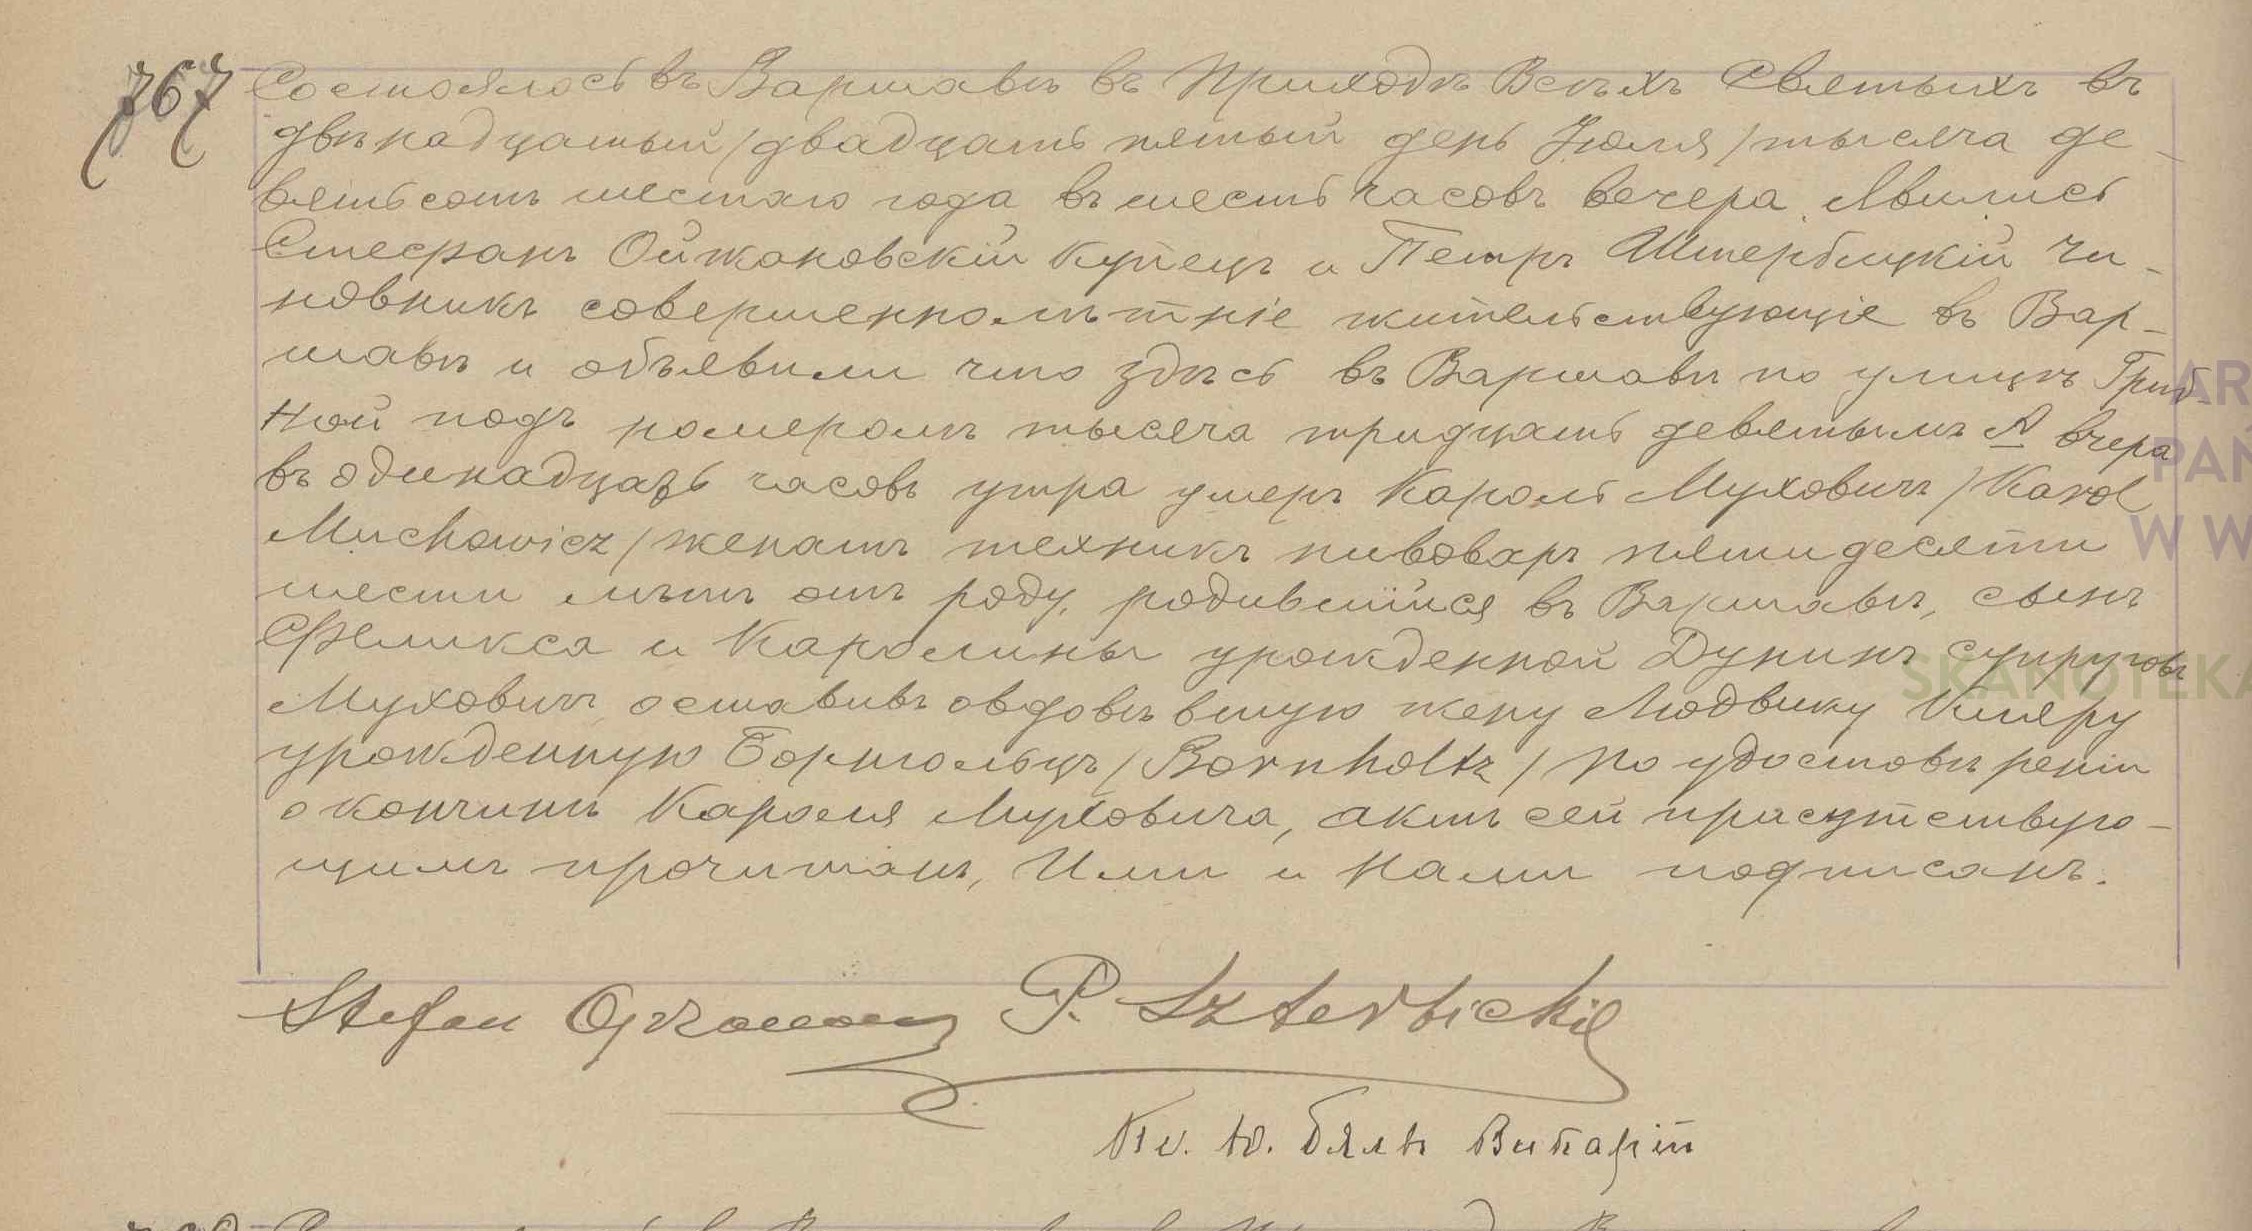 767
Состоялось въ Варшавѣ въ Приходѣ Всѣхъ Святыхъ въ
двѣнадцатый /двадцать пятый день Іюля/ тысяча де-
вятьсотъ шестаго года въ шесть часовъ вечера. Явились
Стефанъ Ойжановскій купецъ и Петръ Штербицкій чи-
новникъ совершеннолѣтніе жительствующіе въ Вар-
шавѣ и объявили что здѣсь въ Варшавѣ по улицѣ Гриб-
ной подъ номеромъ тысяча тридцать девятымъ А вчера
въ одинадцать часовъ утра умеръ Кароль Муховичъ /Karol
Muchowicz/ женатъ техникъ пивоваръ пятидесяти
шести лѣтъ отъ роду, родившійся въ Варшавѣ, сынъ
Феликса и Каролины урожденной Дунинъ супруговъ
Муховичъ оставивъ овдовѣвшую жену Людвику Кляру
урожденную Борнгольцъ /Bornholtz/ По удостовѣреніи
о кончинѣ Кароля Муховича, актъ сей присутствую-
щимъ прочитанъ, Ими и Нами подписанъ.
Stefan
P. Szterbicki
Кс. Ю. Бялъ Викарій
AR
PAŃ
W W
SKANOTEKA